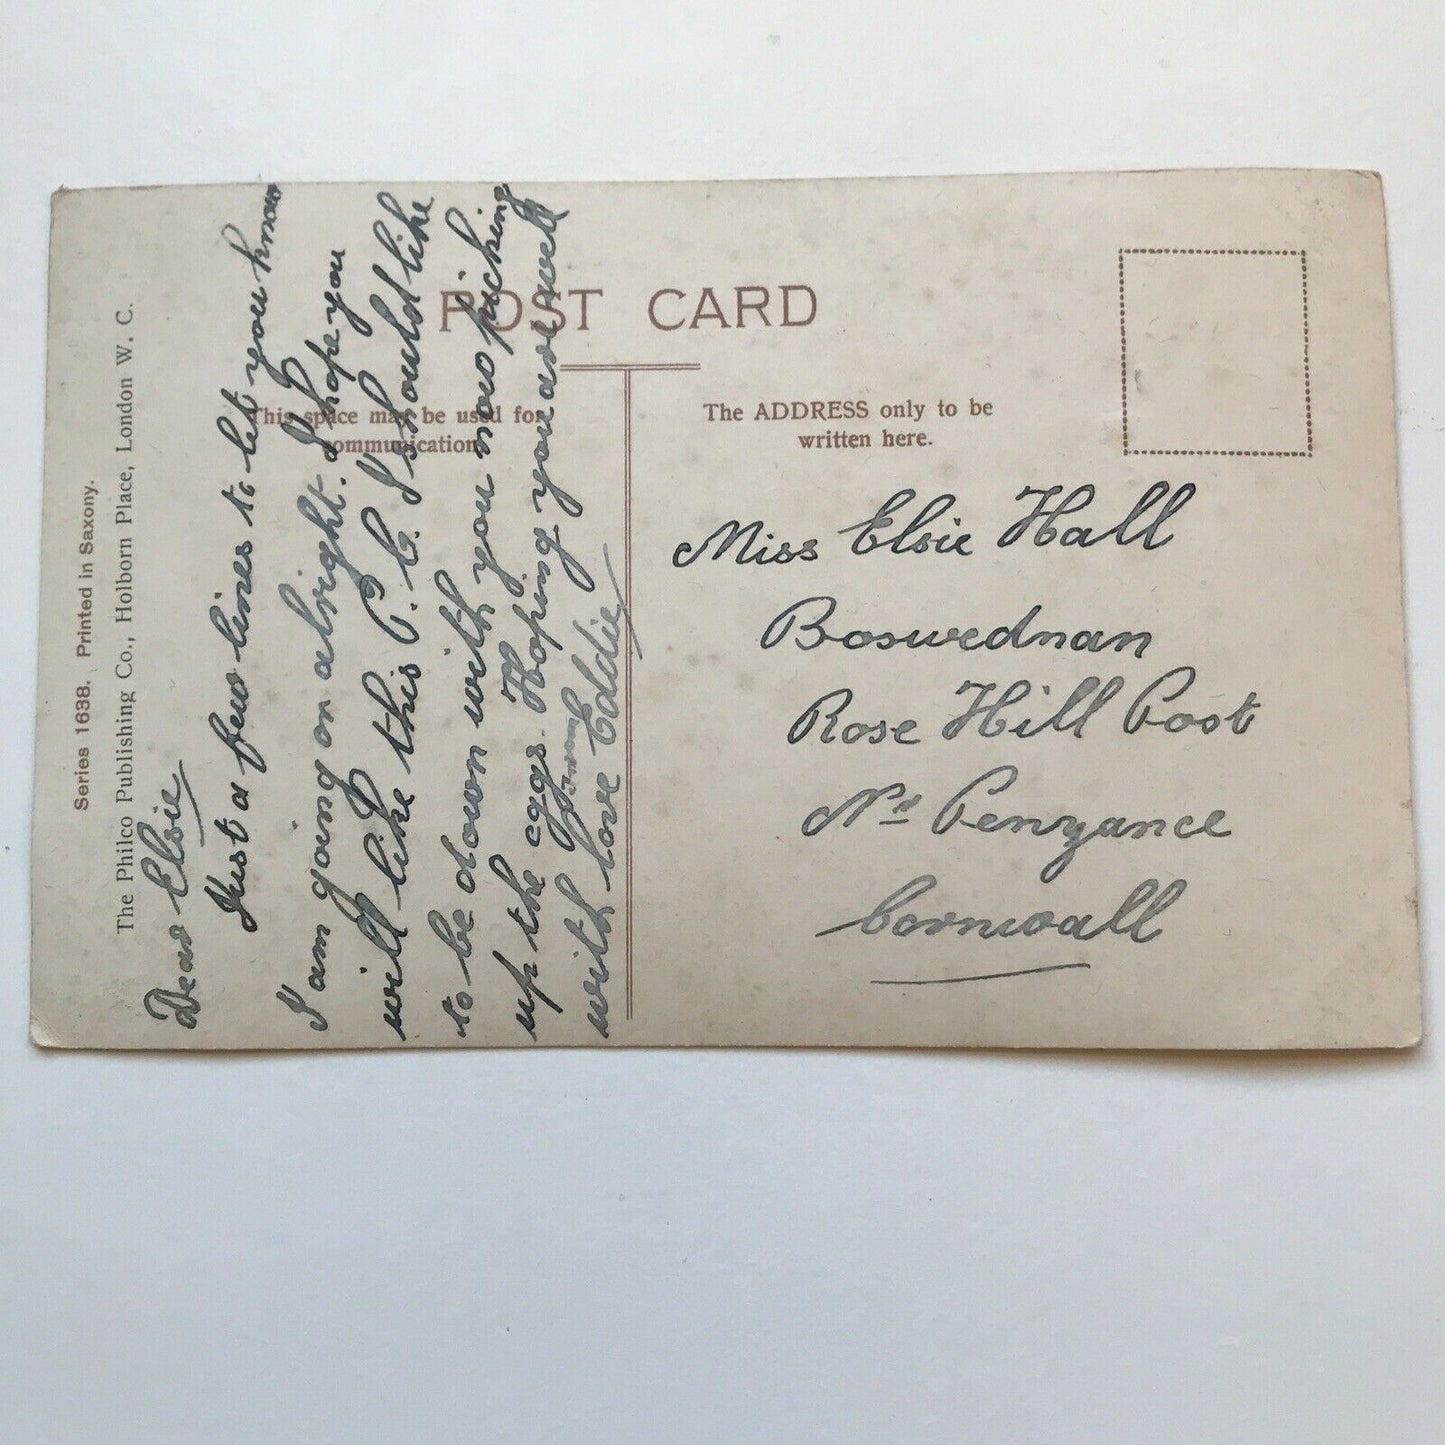 Series 1638. Printed in Saxony.
The Philco Publishing Co., Holborn Place, London W. C.
POST CARD
This space may be used for
communication
The ADDRESS only to be
written here.
Dear Elsie
Just a few lines to let you know
I am going on alright. I hope you
will like this P.C. I should like
to be down with you now piching
up the eggs. Hoping you are well
with love Eddie
Miss Elsie Hall
Boswednan
Rose Hill Post
Nr Penzance
Cornwall